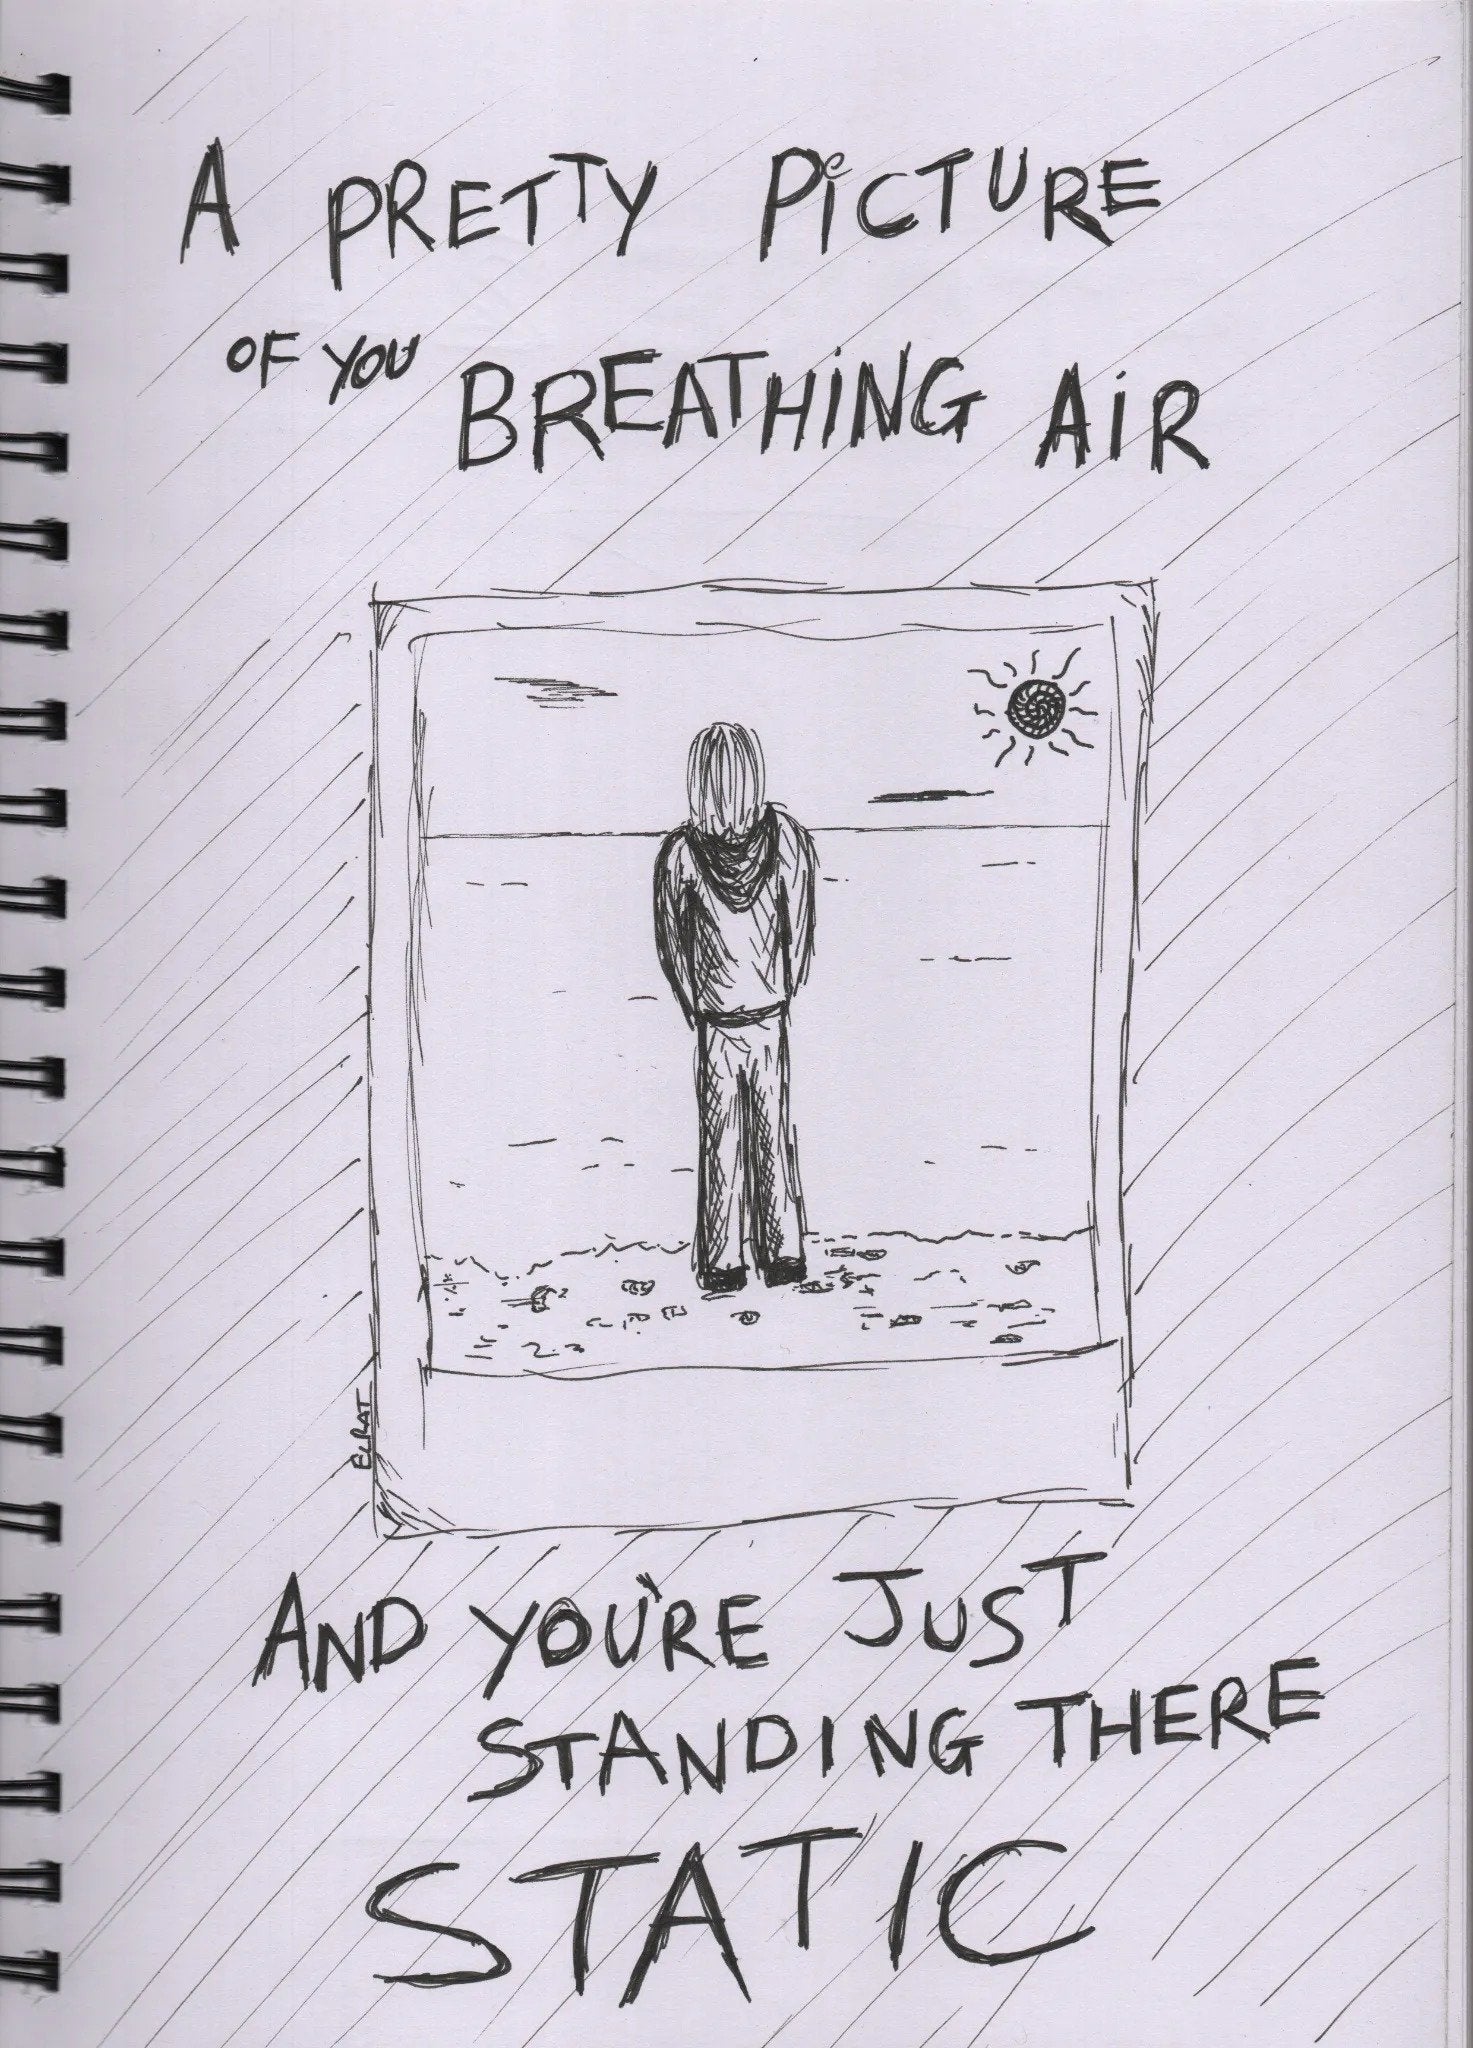 A PRETTY PICTURE
OF YOU BREATHING AIR
ELRAT
AND YOU'RE JUST
STANDING THERE
STATIC